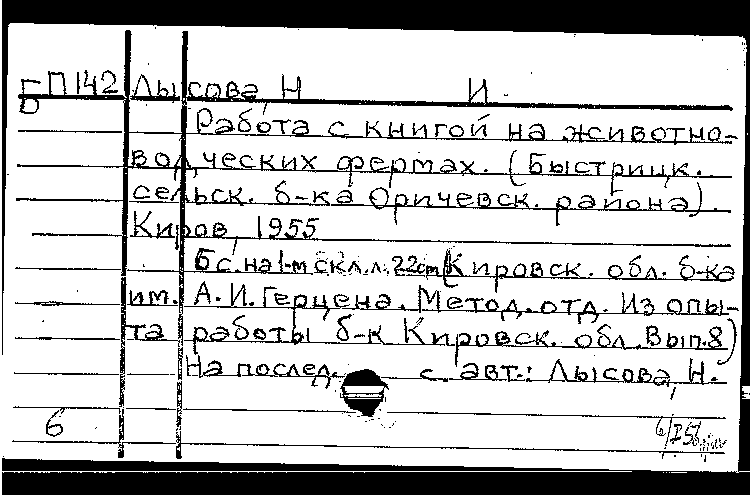 Б П142 Лысова, Н И.
Работа с книгой на животно-
водческих фермах. (Быстрицк.
сельск. б-ка Оричевск. района).
Киров, 1955
6 с. на 1-м скл. л. 22 cm (Кировск. обл. б-ка
им. А. И. Герцена. Метод. отд. Из опы-
та работы б-к Кировск. обл. Вып. 8)
На послед. с. авт.: Лысова, Н.
6